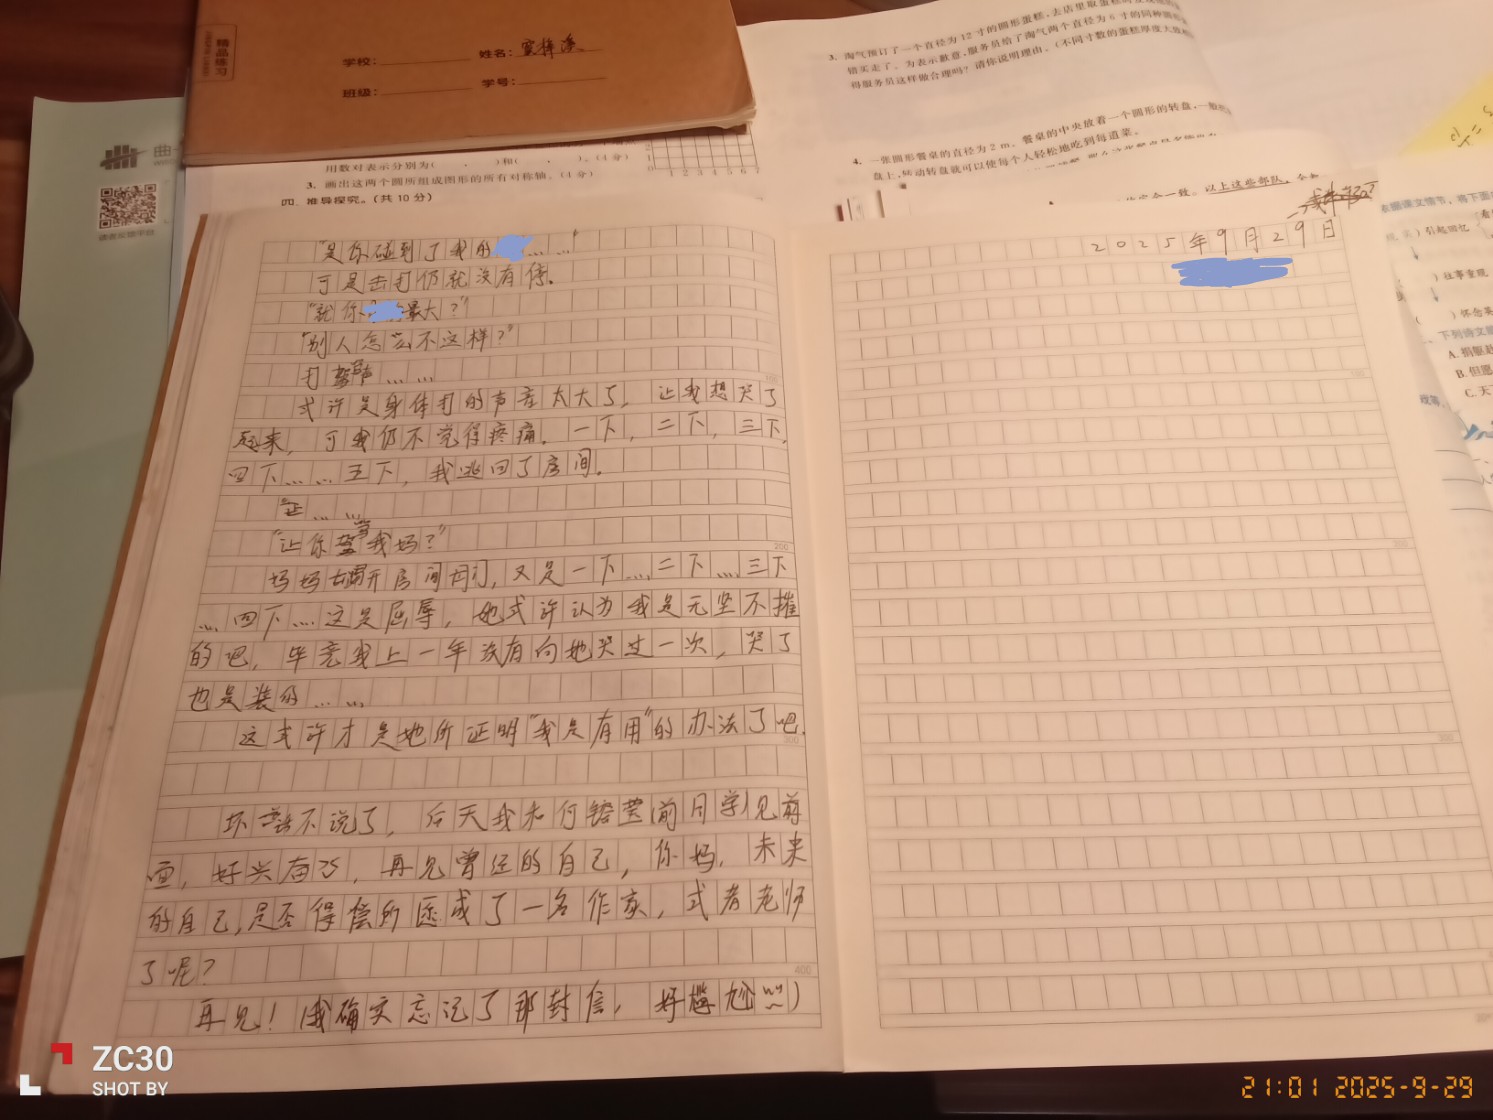 精品练习
学校：
姓名：
班级：
学号：
3. 淘气预订了一个直径为12寸的圆形蛋糕，去店里取蛋糕时发现
错买走了。为表示歉意，服务员给了淘气两个直径为6寸的同种圆形
得服务员这样做合理吗？请你说明理由。（不同寸数的蛋糕厚度大致相
4. 一张圆形餐桌的直径为2 m，餐桌的中央放着一个圆形的转盘，一般
盘上，转动转盘就可以使每个人轻松地吃到每道菜。
用数对表示分别为( , )和( , )。(4分)
3. 画出这两个圆所组成图形的所有对称轴。(4分)
四、推导探究。(共10分)
以上这些部队，
依据课文情节，将下面
）引起回忆
）往事重现
）怀念英
下列诗文
A. 捐躯赴
B. 但愿
C. 天
"是你碰到了我的……"
可是击打仍就没有停。
"就你最大？"
"别人怎么不这样？"
打骂声……
式许是身体打的声音太大了，让我想哭了
起来，可我仍不觉得疼痛。一下，二下，三下，
四下……五下，我逃回了房间。
"让你骂我妈？"
妈妈踹开房间门，又是一下……二下……三下
……四下……这是屈辱，她式许认为我是无坚不摧
的吧，毕竟我上一年没有向她哭过一次，哭了
也是装的……
这式许才是她所证明"我是有用"的办法了吧。
坏话不说了，后天我和何锴莹前同学见前
面，好兴奋，再见曾经的自己，你妈，未来
的自己，是否得偿所愿成了一名作家，式者老师
了呢？
再见！（我确实忘记了那封信，好尴尬）
2025年9月29日
ZC30
SHOT BY
21:01 2025-9-29